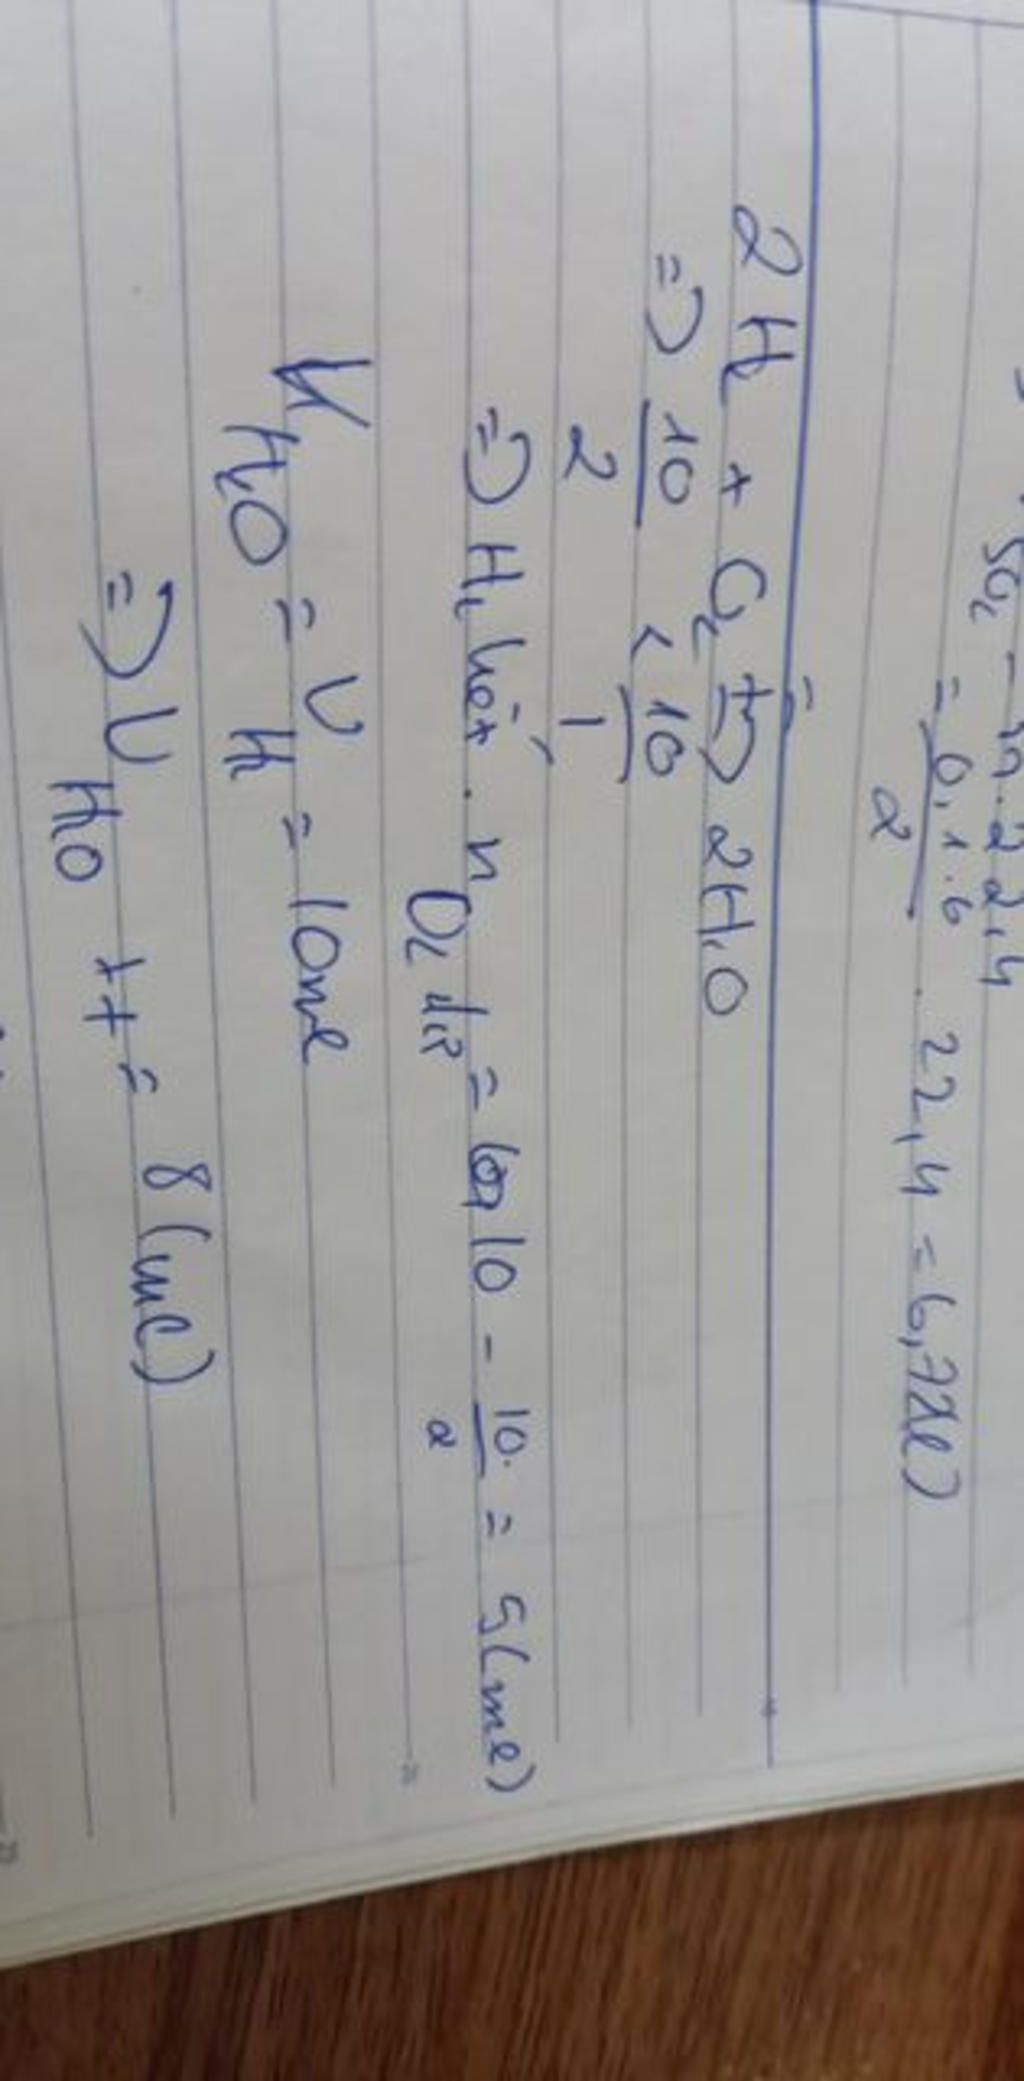 SO₂ = n.22,4
= 0,1.6/2 . 22,4 = 6,72l)
2H₂ + O₂ t°→ 2H₂O
=> 10/2 < 10/1
=> H₂ hết. n O₂ dư = 10 - 10/2 = 5(ml)
V H₂O = V H₂ = 10ml
=> V H₂O tt = 8 (ml)